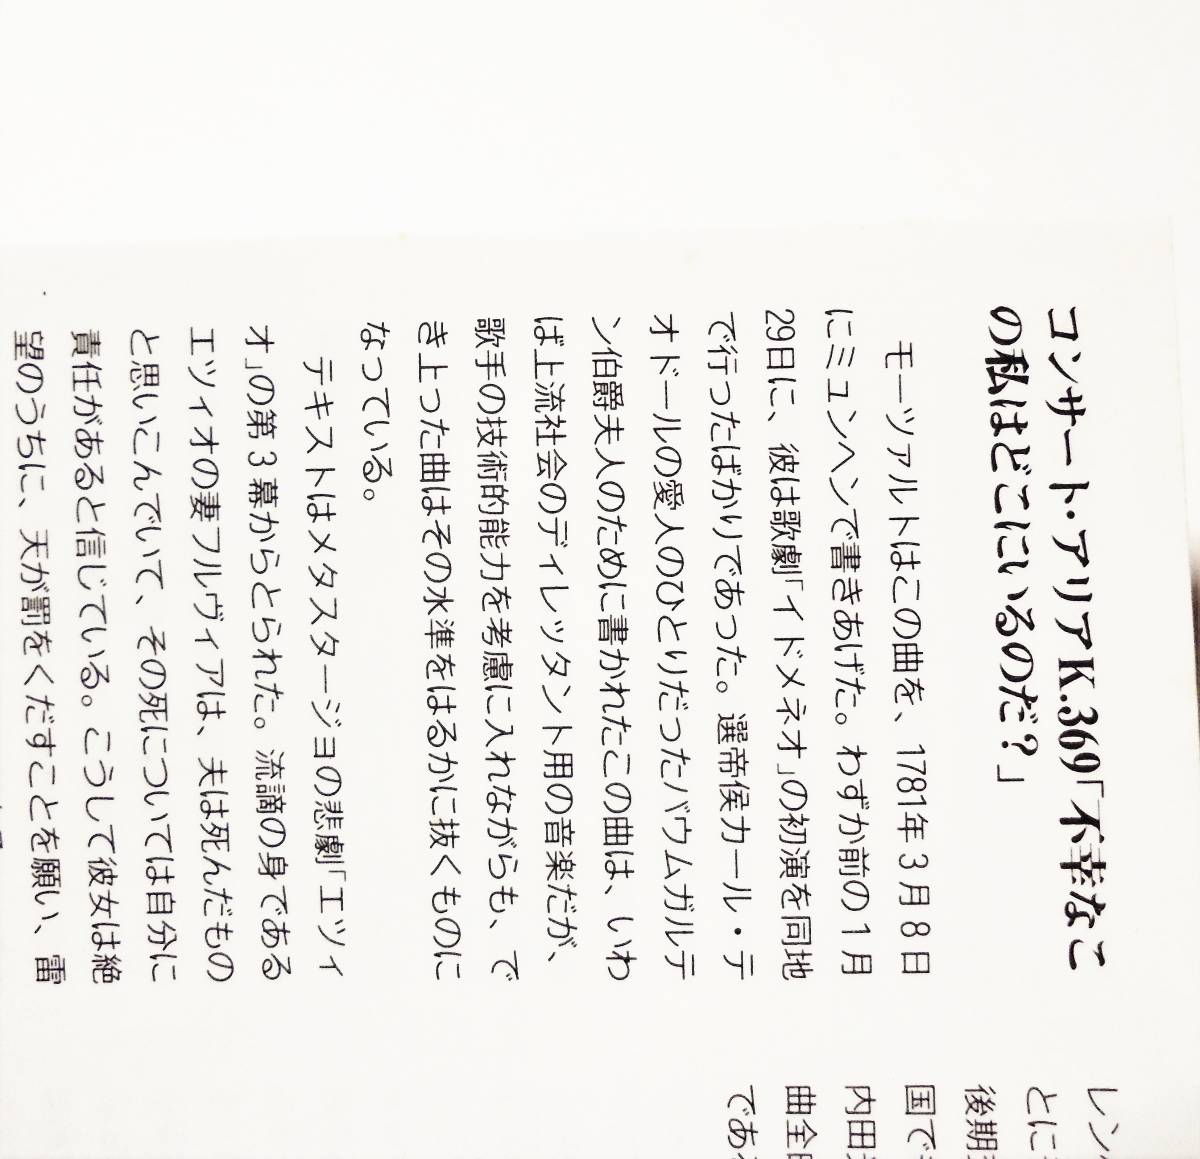 コンサート・アリアK.369「不幸なこ
の私はどこにいるのだ？」
モーツァルトはこの曲を、1781年3月8日
にミュンヘンで書きあげた。わずか前の1月
29日に、彼は歌劇「イドメネオ」の初演を同地
で行ったばかりであった。選帝侯カール・テ
オドールの愛人のひとりだったバウムガルテ
ン伯爵夫人のために書かれたこの曲は、いわ
ば上流社会のディレッタント用の音楽だが、
歌手の技術的能力を考慮に入れながらも、で
き上った曲はその水準をはるかに抜くものに
なっている。
テキストはメタスタージョの悲劇「エツィ
オ」の第3幕からとられた。流謫の身である
エツィオの妻フルヴィアは、夫は死んだもの
と思いこんでいて、その死については自分に
責任があると信じている。こうして彼女は絶
望のうちに、天が罰をくだすことを願い、雷
レン
とに
後期
国で
内田
曲全
であ